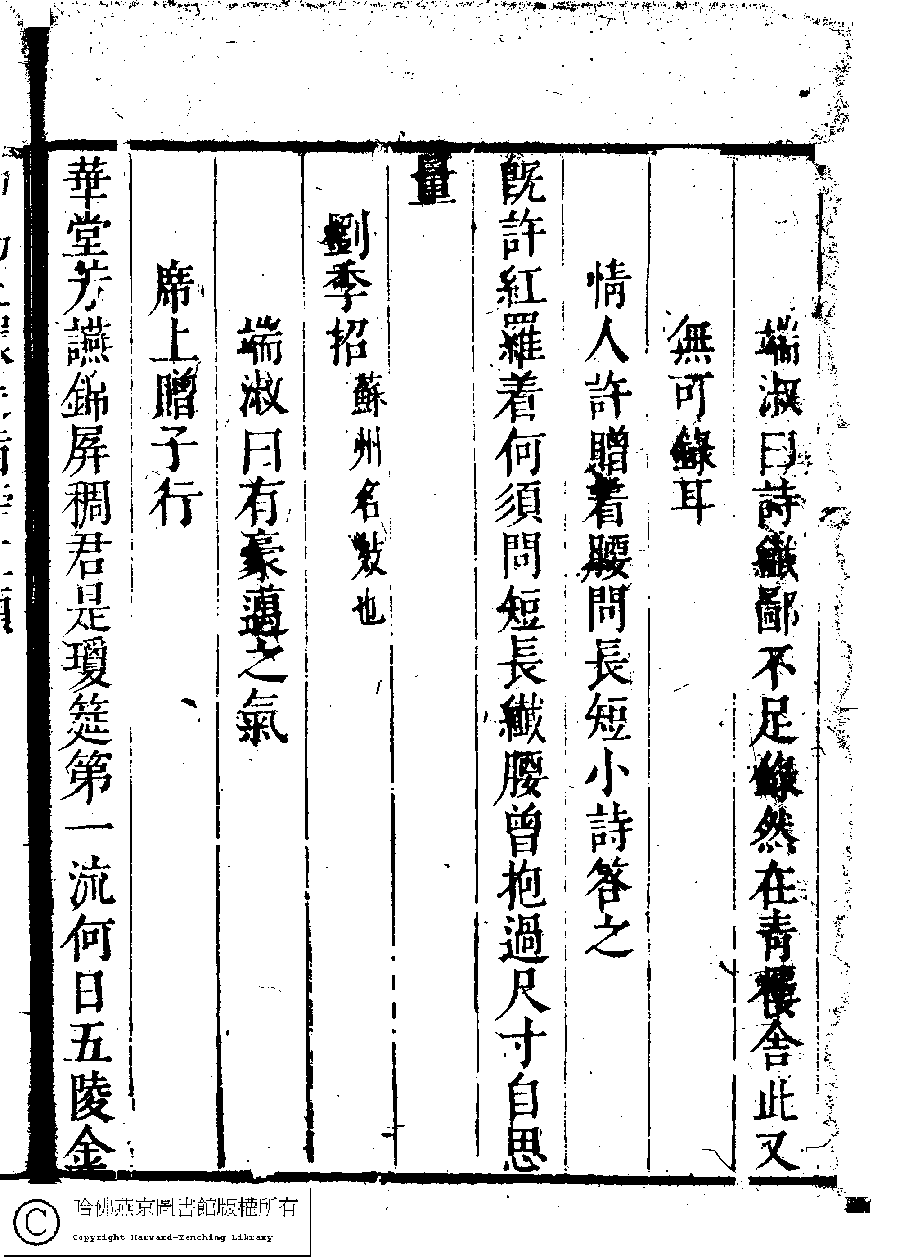 端淑曰詩纖鄙不足錄然在青樓舍此又
無可錄耳
情人許贈着腰問長短小詩答之
既許紅羅着何須問短長纖腰曾抱過尺寸自思
量
劉季招蘇州名妓也
端淑曰有豪邁之氣
席上贈子行
華堂芳讌錦屏稠君是瓊筵第一流何日五陵金
哈佛燕京圖書館版權所有
Copyright Harvard-Yenching Library